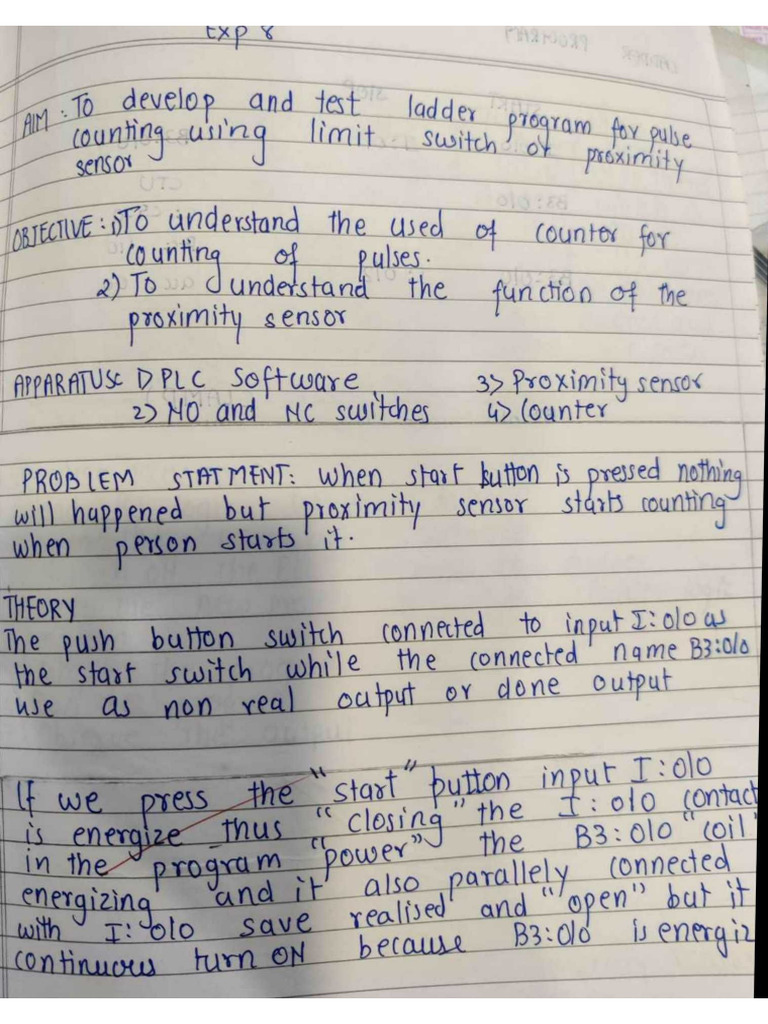 Exp 8
AIM : To develop and test ladder program for pulse
counting using limit switch or proximity
sensor
OBJECTIVE : 1) To understand the used of counter for
counting of pulses.
2) To understand the function of the
proximity sensor
APPARATUS: 1) PLC software 3> Proximity sensor
2) NO and NC switches 4> Counter
PROBLEM STATMENT: when start button is pressed nothing
will happened but proximity sensor starts counting
when person starts it.
THEORY
The push button switch connected to input I:0/0 as
the start switch while the connected name B3:0/0
use as non real output or done output
If we press the "start" button input I:0/0
is energize thus "closing" the I:0/0 contact
in the program "power" the B3:0/0 "coil"
energizing and it also parallely connected
with I:0/0 save realised and "open" but it
continuous turn ON because B3:0/0 is energiz